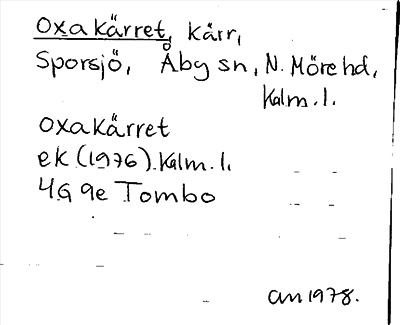 Oxakärret, kärr,
Sporsjö, Åby sn, N. Möre hd,
Kalm. l.
Oxakärret
ek (1976) Kalm. l.
4G 9e Tombo
an 1978.